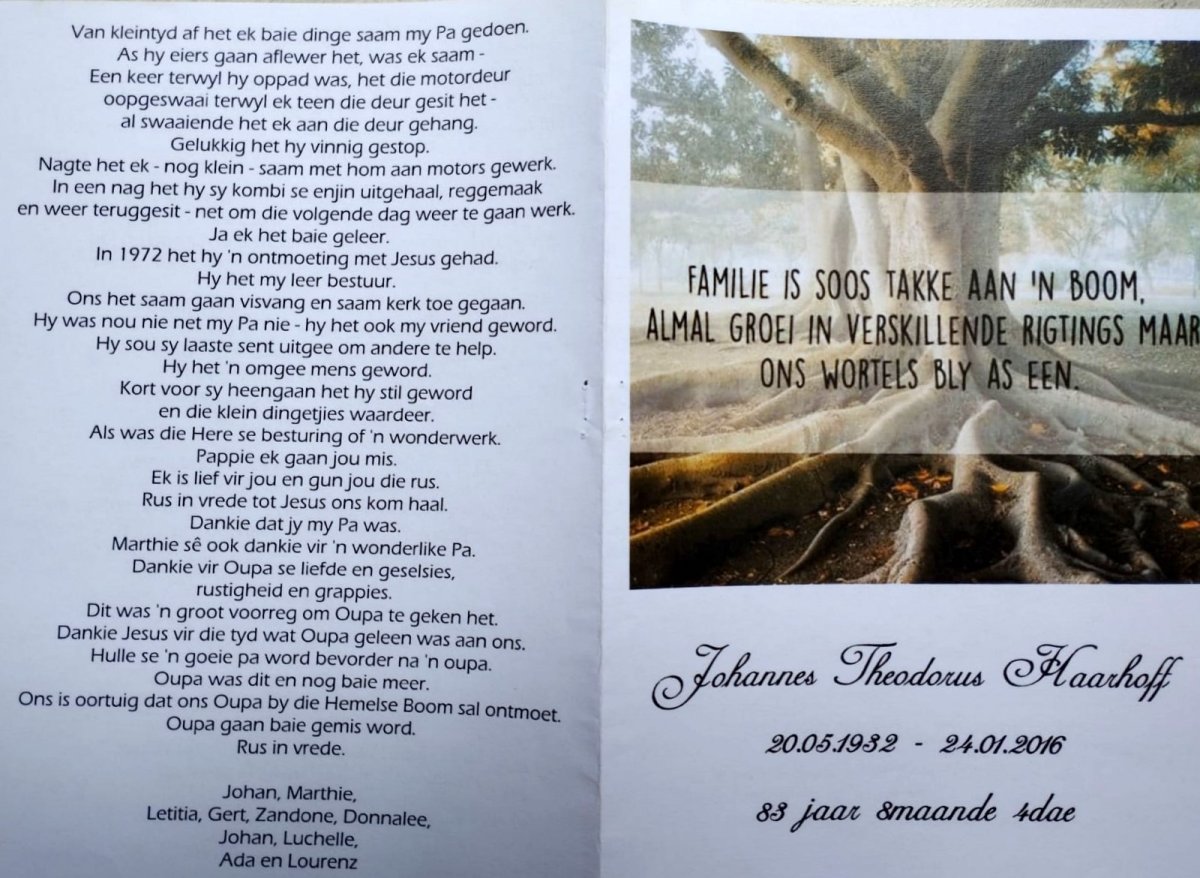 Van kleintyd af het ek baie dinge saam my Pa gedoen.
As hy eiers gaan aflewer het, was ek saam -
Een keer terwyl hy oppad was, het die motordeur
oopgeswaai terwyl ek teen die deur gesit het -
al swaaiende het ek aan die deur gehang.
Gelukkig het hy vinnig gestop.
Nagte het ek - nog klein - saam met hom aan motors gewerk.
In een nag het hy sy kombi se enjin uitgehaal, reggemaak
en weer teruggesit - net om die volgende dag weer te gaan werk.
Ja ek het baie geleer.
In 1972 het hy 'n ontmoeting met Jesus gehad.
Hy het my leer bestuur.
Ons het saam gaan visvang en saam kerk toe gegaan.
Hy was nou nie net my Pa nie - hy het ook my vriend geword.
Hy sou sy laaste sent uitgee om andere te help.
Hy het 'n omgee mens geword.
Kort voor sy heengaan het hy stil geword
en die klein dingetjies waardeer.
Als was die Here se besturing of 'n wonderwerk.
Pappie ek gaan jou mis.
Ek is lief vir jou en gun jou die rus.
Rus in vrede tot Jesus ons kom haal.
Dankie dat jy my Pa was.
Marthie sê ook dankie vir 'n wonderlike Pa.
Dankie vir Oupa se liefde en geselsies,
rustigheid en grappies.
Dit was 'n groot voorreg om Oupa te geken het.
Dankie Jesus vir die tyd wat Oupa geleen was aan ons.
Hulle se 'n goeie pa word bevorder na 'n oupa.
Oupa was dit en nog baie meer.
Ons is oortuig dat ons Oupa by die Hemelse Boom sal ontmoet.
Oupa gaan baie gemis word.
Rus in vrede.
Johan, Marthie,
Letitia, Gert, Zandone, Donnalee,
Johan, Luchelle,
Ada en Lourenz
FAMILIE IS SOOS TAKKE AAN 'N BOOM,
ALMAL GROEI IN VERSKILLENDE RIGTINGS MAAR
ONS WORTELS BLY AS EEN.
Johannes Theodorus Haarhoff
20.05.1932 - 24.01.2016
83 jaar 8maande 4dae